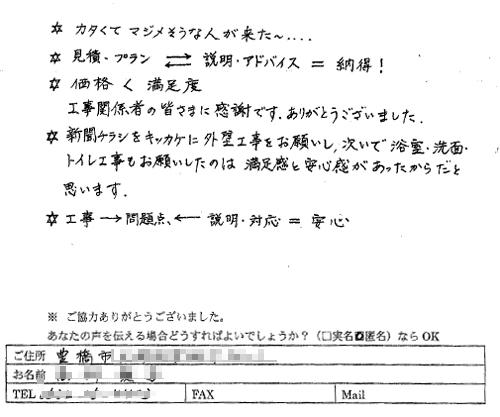 ☆ カタくてマジメそうな人が来た〜‥‥
☆ 見積・プラン ⇄ 説明・アドバイス = 納得!
☆ 価格 < 満足度
工事関係者の皆さまに感謝です.ありがとうございました.
☆ 新聞チラシをキッカケに外壁工事をお願いし,次いで浴室・洗面・
トイレ工事もお願いしたのは満足感と安心感があったからだと
思います.
☆ 工事 → 問題点 ← 説明・対応 = 安心
※ ご協力ありがとうございました。
あなたの声を伝える場合どうすればよいでしょうか?(□実名☑匿名)なら OK
ご住所 豊橋市
お名前
TEL FAX Mail